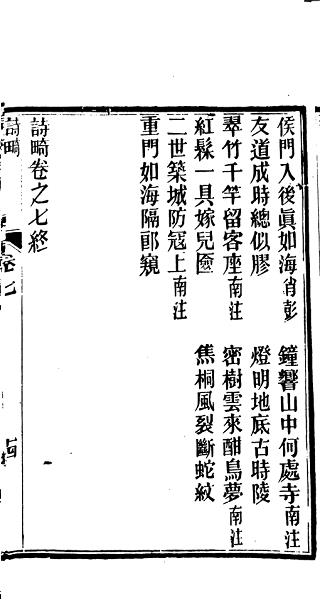 侯門入後眞如海肖彭　鐘響山中何處寺南注
友道成時總似膠　燈明地底古時陵
翠竹千竿留客座南注　密樹雲來酣鳥夢南注
紅髹一具嫁兒匳　焦桐風裂斷蛇紋
二世築城防冠上南注
重門如海隔郎窺
詩畸卷之七終
詩畸　卷七